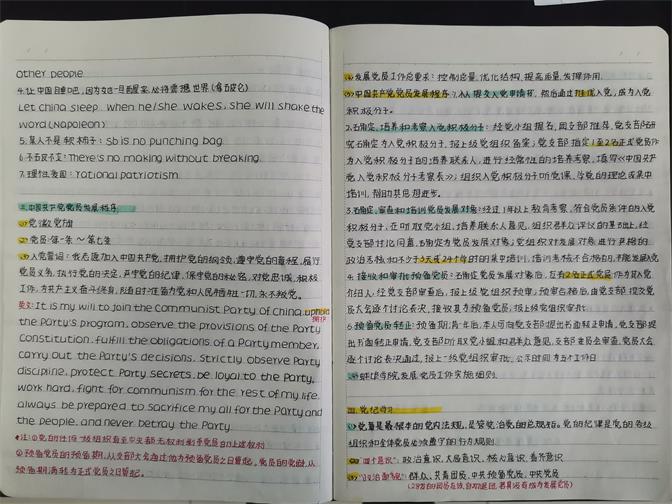 other people.
4.让中国睡吧,因为她一旦醒来,必将震撼世界(拿破仑)
Let China sleep. when he/she wakes, she will shake the
word (Napoleon)
5.某人不是软柿子: sb is no punching bag.
6.不古不立: There's no making without breaking.
7.理性爱国: rational patriotism.
三.中国共产党党员发展程序
(1)党徽党旗
(2)党员:第一条~第七条
(3)入党誓词:我志愿加入中国共产党,拥护党的纲领,遵守党的章程,履行
党员义务,执行党的决定,严守党的纪律,保守党的秘密,对党忠诚,积极
工作,为共产主义奋斗终身,随时准备为党和人民牺牲一切,永不叛党。
英文: It is my will to join the Communist Party of China, uphold
拥护
the Party's program, observe the provisions of the Party
Constitution, fulfill the obligations of a Party member,
carry out the Party's decisions, strictly observe Party
discipline, protect Party secrets, be loyal to the Party,
work hard, fight for communism for the rest of my life,
always be prepared to sacrifice my all for the Party and
the people, and never betray the Party.
*注:①党的
②预备党员的预备期,从支部大会通过他为预备党员之日算起。党员的党龄,从
预备期满转为正式党员之日算起。
(4)发展党员工作总要求:控制总量,优化结构,提高质量,发挥作用.
(5)中国共产党党员发展程序:1.本人提交入党申请书,然后通过推优入党,成为入党
积极分子.
2.确定、培养和考察入党积极分子:经党小组提名,团支部推荐,党支部研
究确定为入党积极分子,报上级党组织备案;党支部指定1至2名正式党员作
为入党积极分子的培养联系人,进行经常性的培养考察,填写《中国共产
党入党积极分子考察表》;组织入党积极分子听党课,学党的理论或集中
培训,帮助其思想进步.
3.确定、审查和培训党员发展对象:经过1年以上教育考察,符合党员条件的入党
积极分子,在听取党小组,培养联系人意见,组织群众评议的基础上,经
党支部讨论同意,确定为党员发展对象;党组织对发展对象进行严格的
政治考核和不少于3天或24个学时的集中培训,培训考核不合格的,不能发展入党
4.接收和审批预备党员:确定党员发展对象后,应有2名正式党员作为其入党
介绍人,经党支部审查后,报上级党组织预审;预审合格后,由党支部提交党
员大会逐个讨论表决,接收其为预备党员,报上级党组织审批.
5.预备党员转正:预备期满一年后,本人应向党支部提出书面转正申请,党支部提
出书面转正申请,党支部应听取党小组和群众意见,支部委员会审查,党员大会
逐个讨论表决通过,报上一级党组织审批,公示时间为5个工作日
(6)蚌埠学院发展党员工作实施细则.
四.党纪学习
(1)党章是最根本的党内法规,是管党治党的总规矩。党的纪律是党的各级
组织和全体党员必须遵守的行为规则
(2)"四个意识":政治意识,大局意识,核心意识,看齐意识
(3)"政治面貌":群众,共青团员,中共预备党员,中共党员